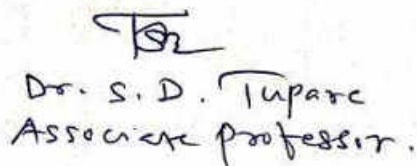 Dr. S. D. Tupare
Associate professor.